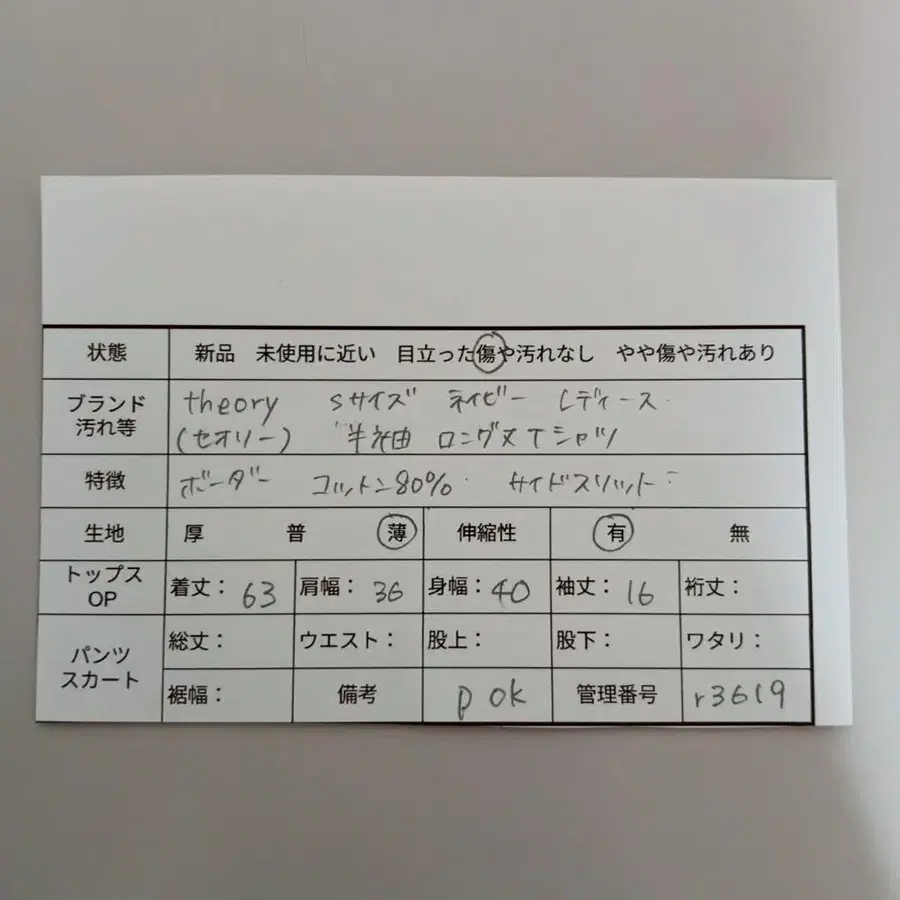 状態 新品 未使用に近い 目立った傷や汚れなし やや傷や汚れあり
ブランド 汚れ等 theory Sサイズ ネイビー レディース
(セオリー) 半袖 ロング丈Tシャツ
特徴 ボーダー コットン80% サイドスリット
生地 厚 普 薄 伸縮性 有 無
トップス OP 着丈: 63 肩幅: 36 身幅: 40 袖丈: 16 裄丈:
パンツ スカート 総丈: ウエスト: 股上: 股下: ワタリ:
裾幅: 備考 p ok 管理番号 r3619